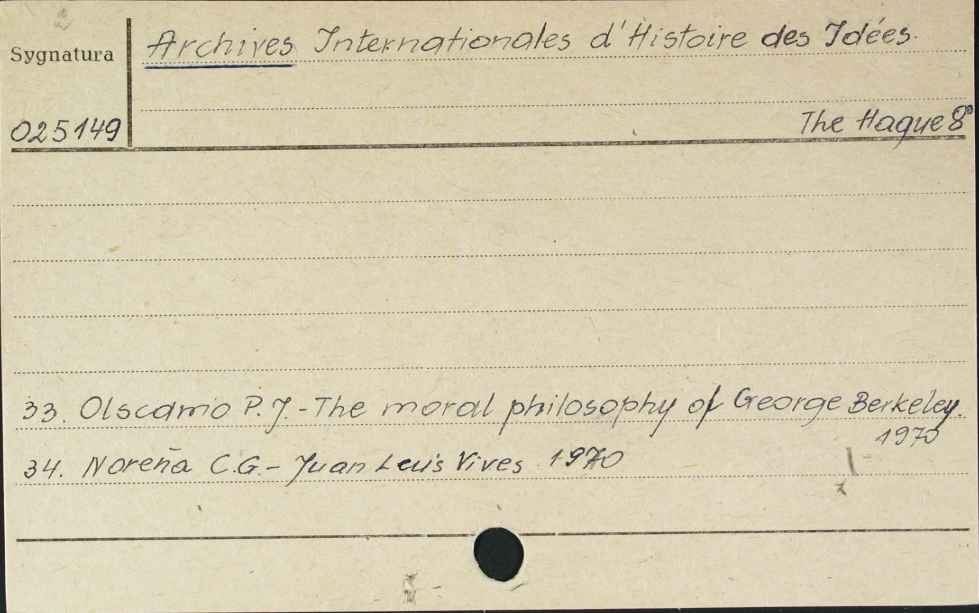 Sygnatura
Archives Internationales d'Histoire des Idées.
025149
The Hague 8°
33. Olscamo P.J. - The moral philosophy of George Berkeley.
1970
34. Noreña C.G. - Juan Leuis Vives 1970